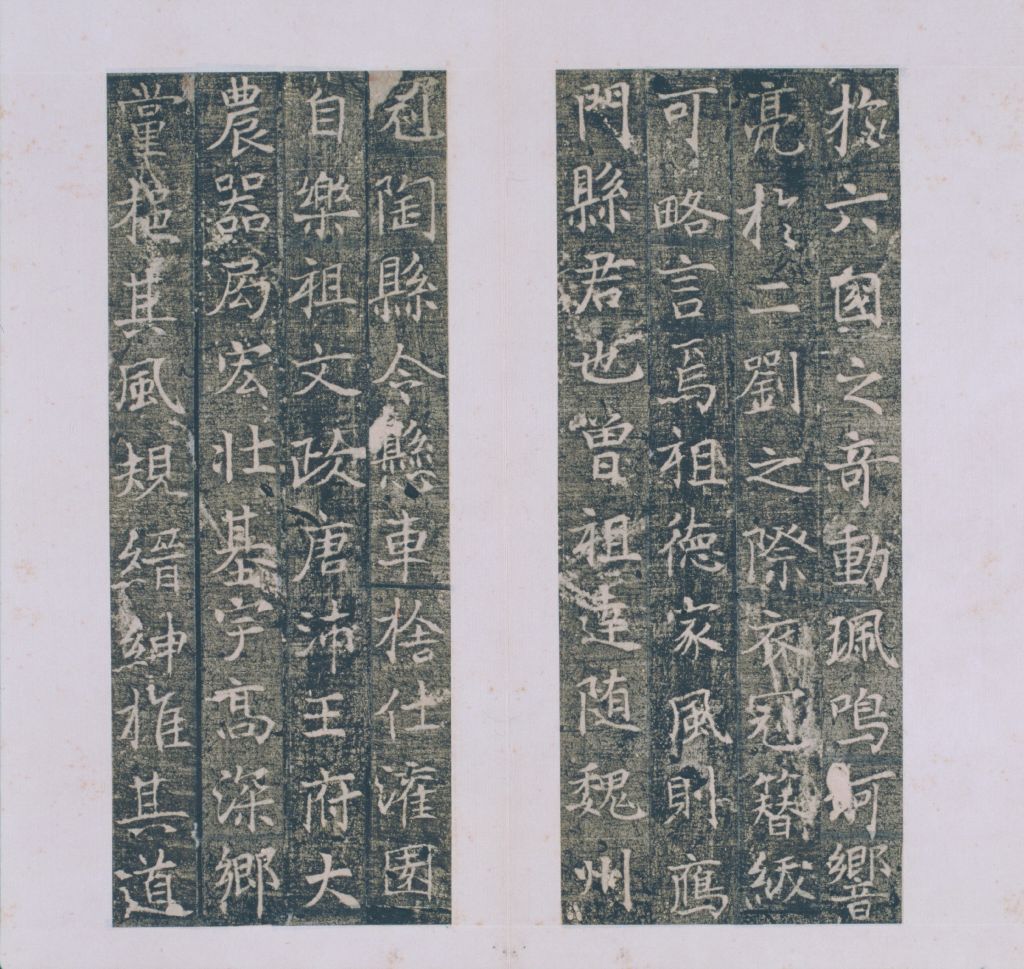 於六國之奇動珮鳴珂響
亮於二劉之際衣冠簪紱
可略言焉祖德家風則鴈
門縣君也曾祖達随魏州
冠陶縣令懸車捨仕灌園
自樂祖文政唐沛王府大
農器局宏壯基宇高深鄉
黨其風規縉紳推其道